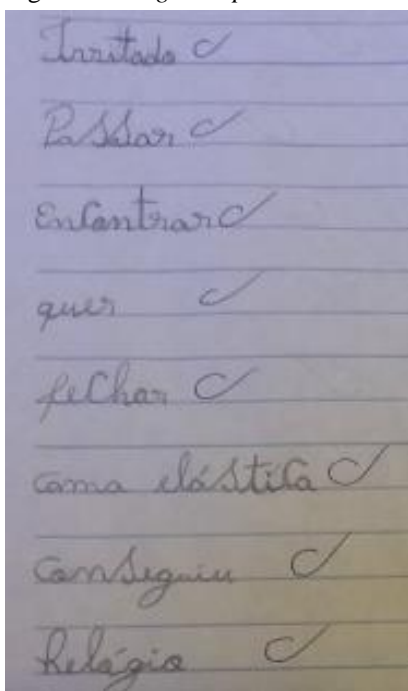 Irritado
Passar
Encontrar
quer
fechar
cama elástica
conseguiu
Relógio